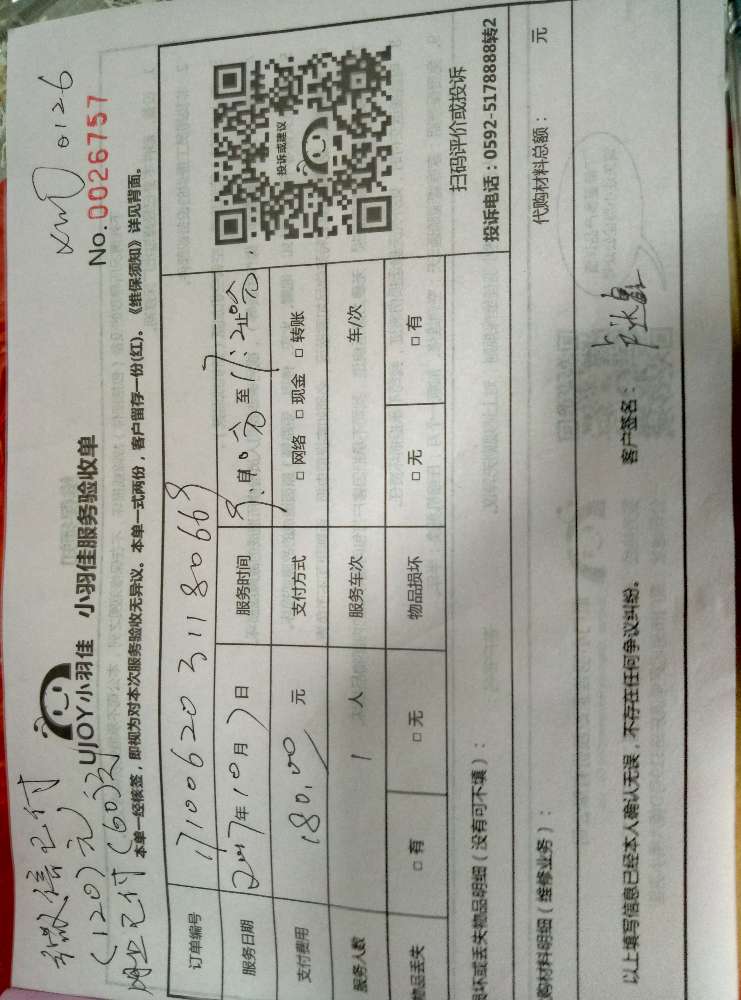 微信已付
(120)元
已付(60)元
0126
No.0026757
UJOY小羽佳 小羽佳服务验收单
本单一经核签，即视为对本次服务验收无异议。本单一式两份，客户留存一份(红)。《维保须知》详见背面。
订单编号 1710062031180669
服务日期 2017年10月7日 服务时间 至
支付费用 180.00元 支付方式 □网络 □现金 □转账
服务人数 1人 服务车次 车/次
物品丢失 □有 □无 物品损坏 □无 □有
投诉或建议
扫码评价或投诉
投诉电话：0592-5178888转2
损坏或丢失物品明细（没有可不填）：
购材料明细（维修业务）： 代购材料总额： 元
以上填写信息已经本人确认无误，不存在任何争议纠纷。 客户签名：